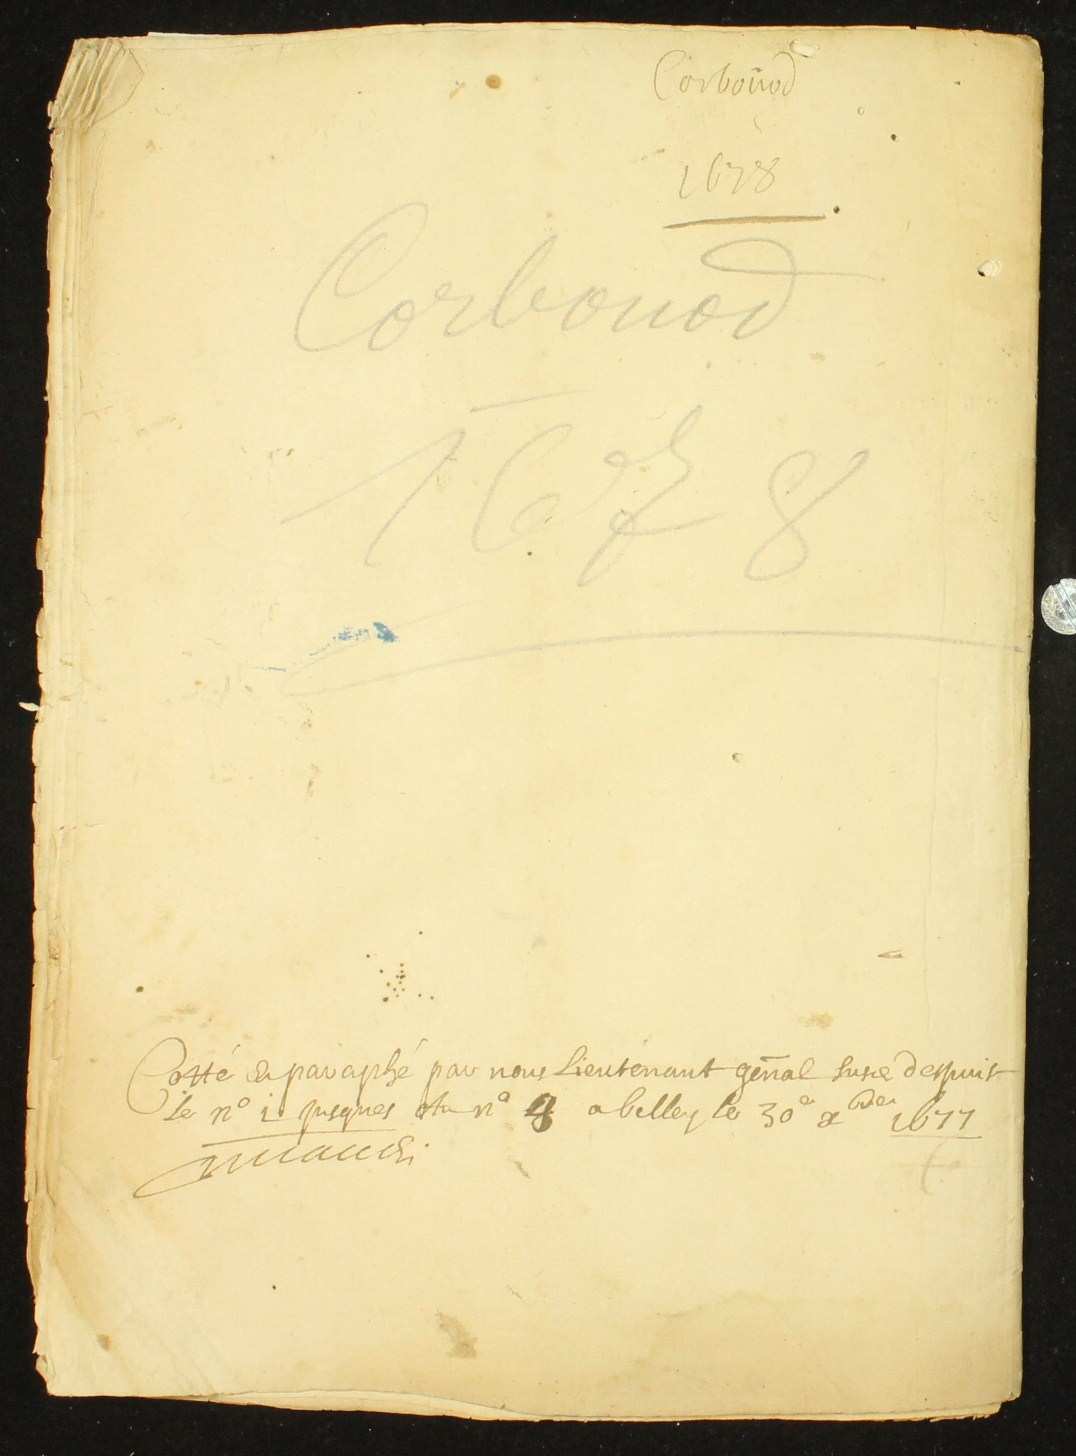 Corboüod
1678
Corbouod
1678
Cotté & paraphé par nous Lieutenant gñal susd despuis
le n° 1 jusques au n° 8 a belley le 30e xbre 1677